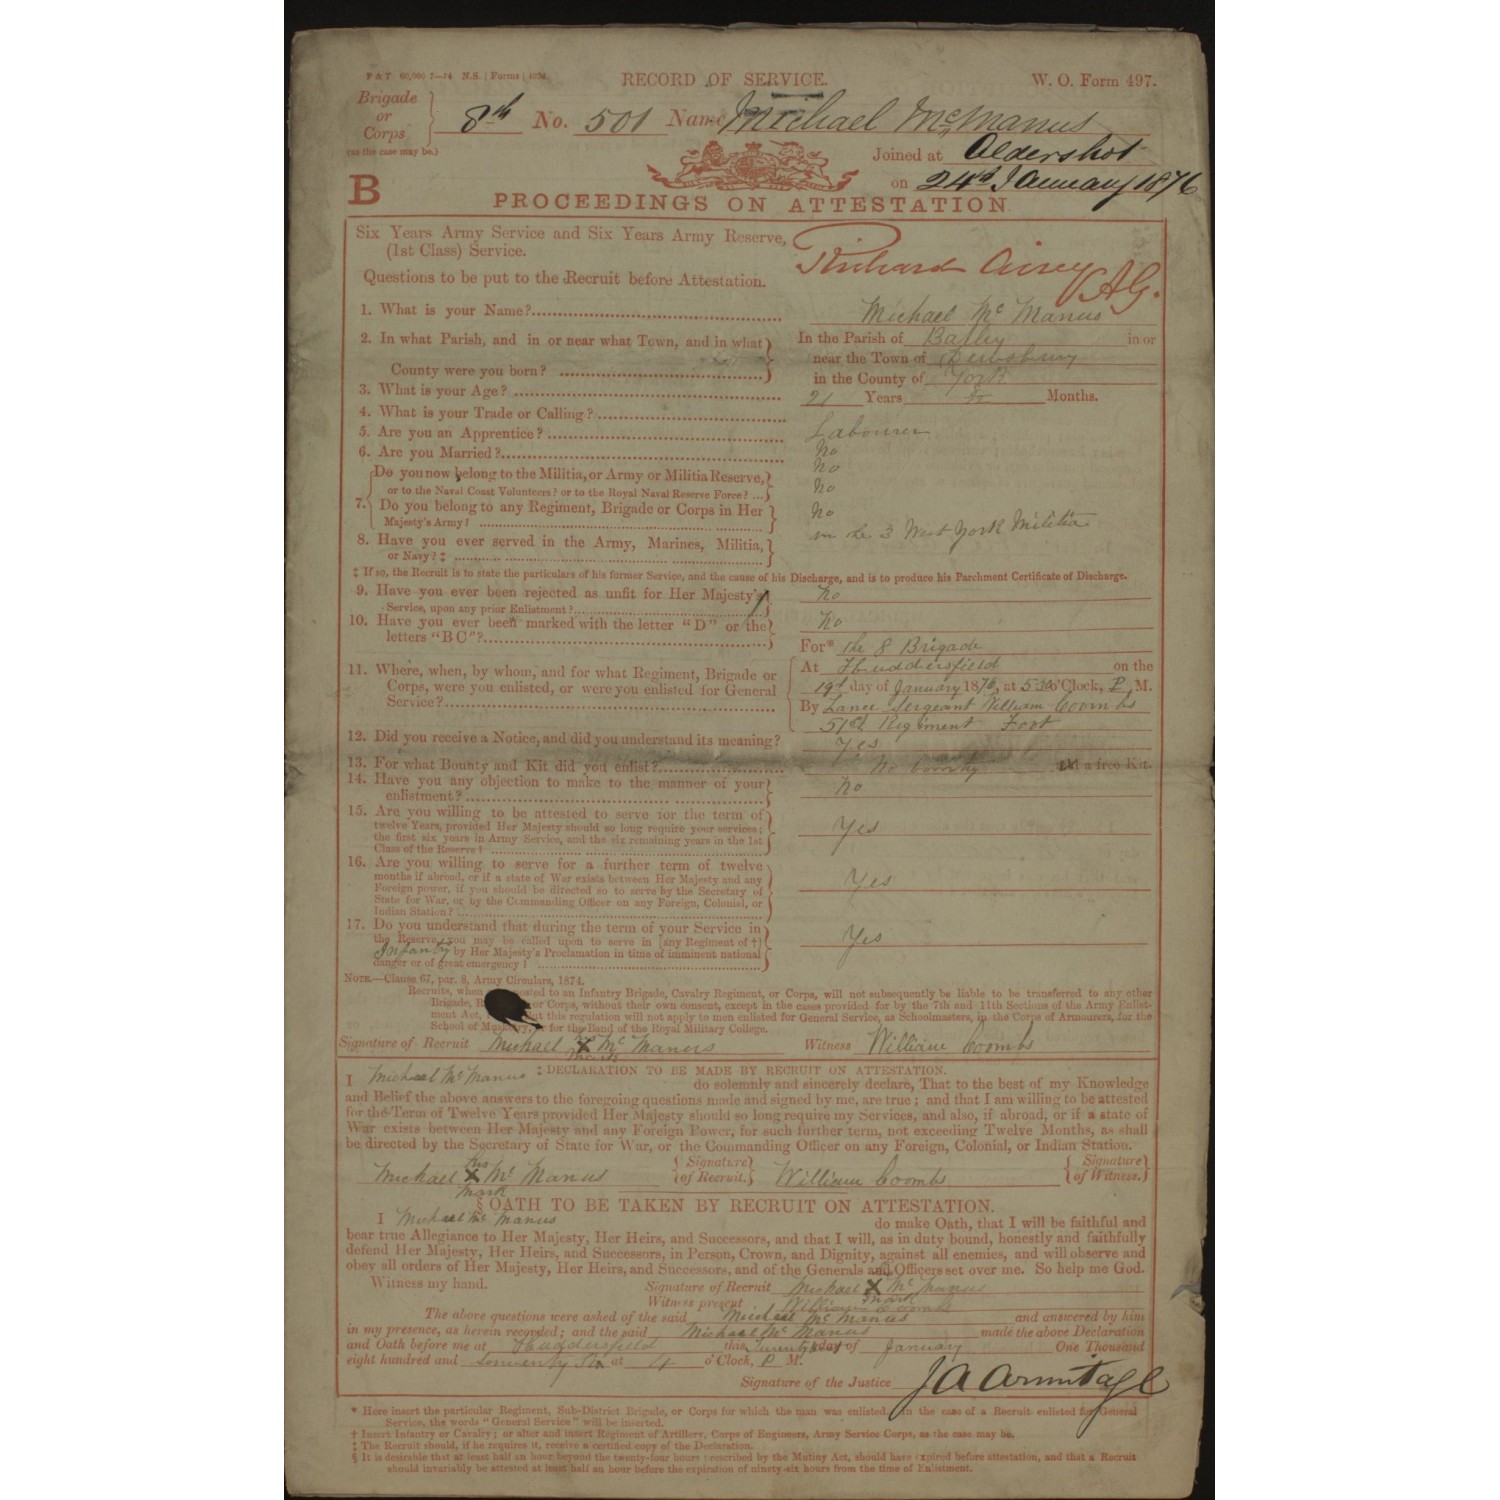 RECORD OF SERVICE.
W. O. Form 497.
Brigade or Corps 8th No. 501 Name Michael McManus
(as the case may be.)
Joined at Aldershot
on 24th January 1876
B
PROCEEDINGS ON ATTESTATION.
Six Years Army Service and Six Years Army Reserve,
(1st Class) Service.
Richard Airey AG.
Questions to be put to the Recruit before Attestation.
1. What is your Name? Michael McManus
2. In what Parish, and in or near what Town, and in what County were you born?
In the Parish of Batley in or
near the Town of Dewsbury
in the County of York
3. What is your Age? 21 Years Months.
4. What is your Trade or Calling? Labourer
5. Are you an Apprentice? No
6. Are you Married? No
7. Do you now belong to the Militia, or Army or Militia Reserve,
or to the Naval Coast Volunteers? or to the Royal Naval Reserve Force? No
Do you belong to any Regiment, Brigade or Corps in Her
Majesty's Army? No
8. Have you ever served in the Army, Marines, Militia,
or Navy? ‡ in the 3 West York Militia
‡ If so, the Recruit is to state the particulars of his former Service, and the cause of his Discharge, and is to produce his Parchment Certificate of Discharge.
9. Have you ever been rejected as unfit for Her Majesty's
Service, upon any prior Enlistment? No
10. Have you ever been marked with the letter "D" or the
letters "BC"? No
11. Where, when, by whom, and for what Regiment, Brigade or
Corps, were you enlisted, or were you enlisted for General
Service?
For* the 8 Brigade
At Huddersfield on the
19th day of January 1876, at 5.30 o'Clock, P.M.
By Lance Sergeant William Coombs
51st Regiment Foot
12. Did you receive a Notice, and did you understand its meaning? Yes
13. For what Bounty and Kit did you enlist? No bounty a free Kit.
14. Have you any objection to make to the manner of your
enlistment? No
15. Are you willing to be attested to serve for the term of
twelve Years, provided Her Majesty should so long require your services;
the first six years in Army Service, and the six remaining years in the 1st
Class of the Reserve? Yes
16. Are you willing to serve for a further term of twelve
months if abroad, or if a state of War exists between Her Majesty and any
Foreign power, if you should be directed so to serve by the Secretary of
State for War, or by the Commanding Officer on any Foreign, Colonial, or
Indian Station? Yes
17. Do you understand that during the term of your Service in
the Reserve, you may be called upon to serve in [any Regiment of †]
Infantry by Her Majesty's Proclamation in time of imminent national
danger or of great emergency? Yes
NOTE.—Clause 67, par. 8, Army Circulars, 1874.
Recruits, when posted to an Infantry Brigade, Cavalry Regiment, or Corps, will not subsequently be liable to be transferred to any other
Brigade, or Corps, without their own consent, except in the cases provided for by the 7th and 11th Sections of the Army Enlist-
ment Act, but this regulation will not apply to men enlisted for General Service, as Schoolmasters, in the Corps of Armourers, for the
School of Musketry, or for the Band of the Royal Military College.
Signature of Recruit Michael his X mark McManus Witness William Coombs
‡ DECLARATION TO BE MADE BY RECRUIT ON ATTESTATION.
I Michael McManus do solemnly and sincerely declare, That to the best of my Knowledge
and Belief the above answers to the foregoing questions made and signed by me, are true; and that I am willing to be attested
for the Term of Twelve Years provided Her Majesty should so long require my Services, and also, if abroad, or if a state of
War exists between Her Majesty and any Foreign Power, for such further term, not exceeding Twelve Months, as shall
be directed by the Secretary of State for War, or the Commanding Officer on any Foreign, Colonial, or Indian Station.
Michael his X mark McManus {Signature of Recruit.} William Coombs {Signature of Witness.}
§ OATH TO BE TAKEN BY RECRUIT ON ATTESTATION.
I Michael McManus do make Oath, that I will be faithful and
bear true Allegiance to Her Majesty, Her Heirs, and Successors, and that I will, as in duty bound, honestly and faithfully
defend Her Majesty, Her Heirs, and Successors, in Person, Crown, and Dignity, against all enemies, and will observe and
obey all orders of Her Majesty, Her Heirs, and Successors, and of the Generals and Officers set over me. So help me God.
Witness my hand.
Signature of Recruit Michael X mark McManus
Witness present William Coombs
The above questions were asked of the said Michael McManus and answered by him
in my presence, as herein recorded; and the said Michael McManus made the above Declaration
and Oath before me at Huddersfield this day of January One Thousand
eight hundred and seventy Six at 4 o'Clock, P. M.
Signature of the Justice J A Armitage
* Here insert the particular Regiment, Sub-District Brigade, or Corps for which the man was enlisted. In the case of a Recruit enlisted for General
Service, the words "General Service" will be inserted.
† Insert Infantry or Cavalry; or alter and insert Regiment of Artillery, Corps of Engineers, Army Service Corps, as the case may be.
‡ The Recruit should, if he requires it, receive a certified copy of the Declaration.
§ It is desirable that at least half an hour beyond the twenty-four hours prescribed by the Mutiny Act, should have expired before attestation, and that a Recruit
should invariably be attested at least half an hour before the expiration of ninety-six hours from the time of Enlistment.